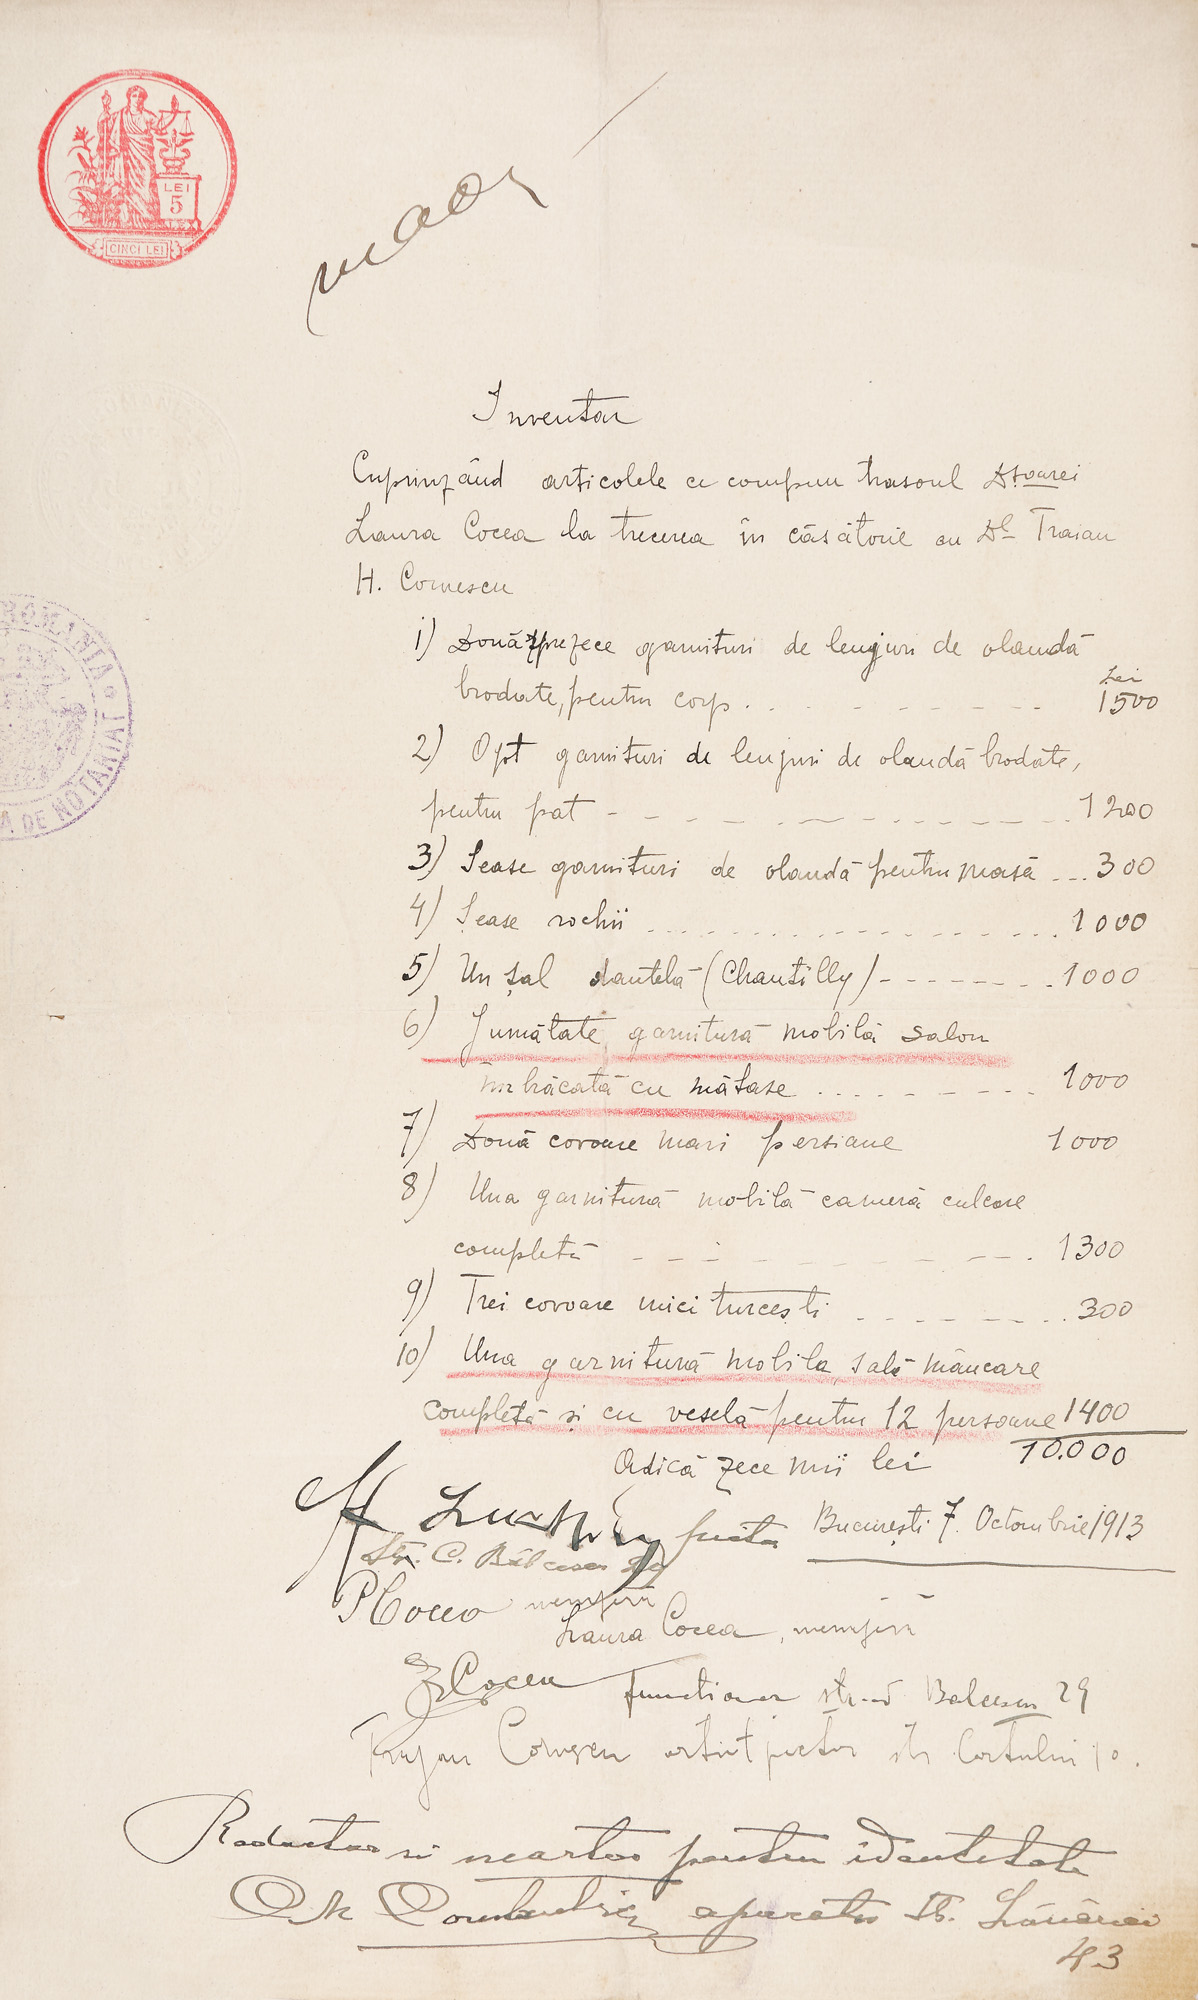 LEI
5
CINCI LEI
Inventar
Cuprinzând articolele ce compun trusoul Dșoarei
Laura Cocea la trecerea în căsătorie cu Dl Traian
H. Cornescu
ROMANIA
DE NOTARIAT
1) Douăsprezece garnituri de lenjuri de olandă
Lei
brodate, pentru corp 1500
2) Opt garnituri de lenjuri de olandă brodate,
pentru pat 1200
3) Șease garnituri de olandă pentru masă ... 300
4) Șease rochii 1000
5) Un șal dantelă (Chantilly) 1000
6) Jumătate garnitură mobilă salon
îmbrăcată cu mătase 1000
7) Două covoare mari persiane 1000
8) Una garnitură mobilă cameră culcare
completă 1300
9) Trei covoare mici turcești 300
10) Una garnitură mobila sală mâncare
completă și cu veselă pentru 12 persoane 1400
10.000
Adică zece mii lei
București 7. Octombrie 1913
Str. C. Bălcescu 29
PCocea
Laura Cocea,
Cocea functionar Balcescu 29
Trajan Cornescu artist pictor str Cortului 10.
Redactor si martor pentru identitate
43